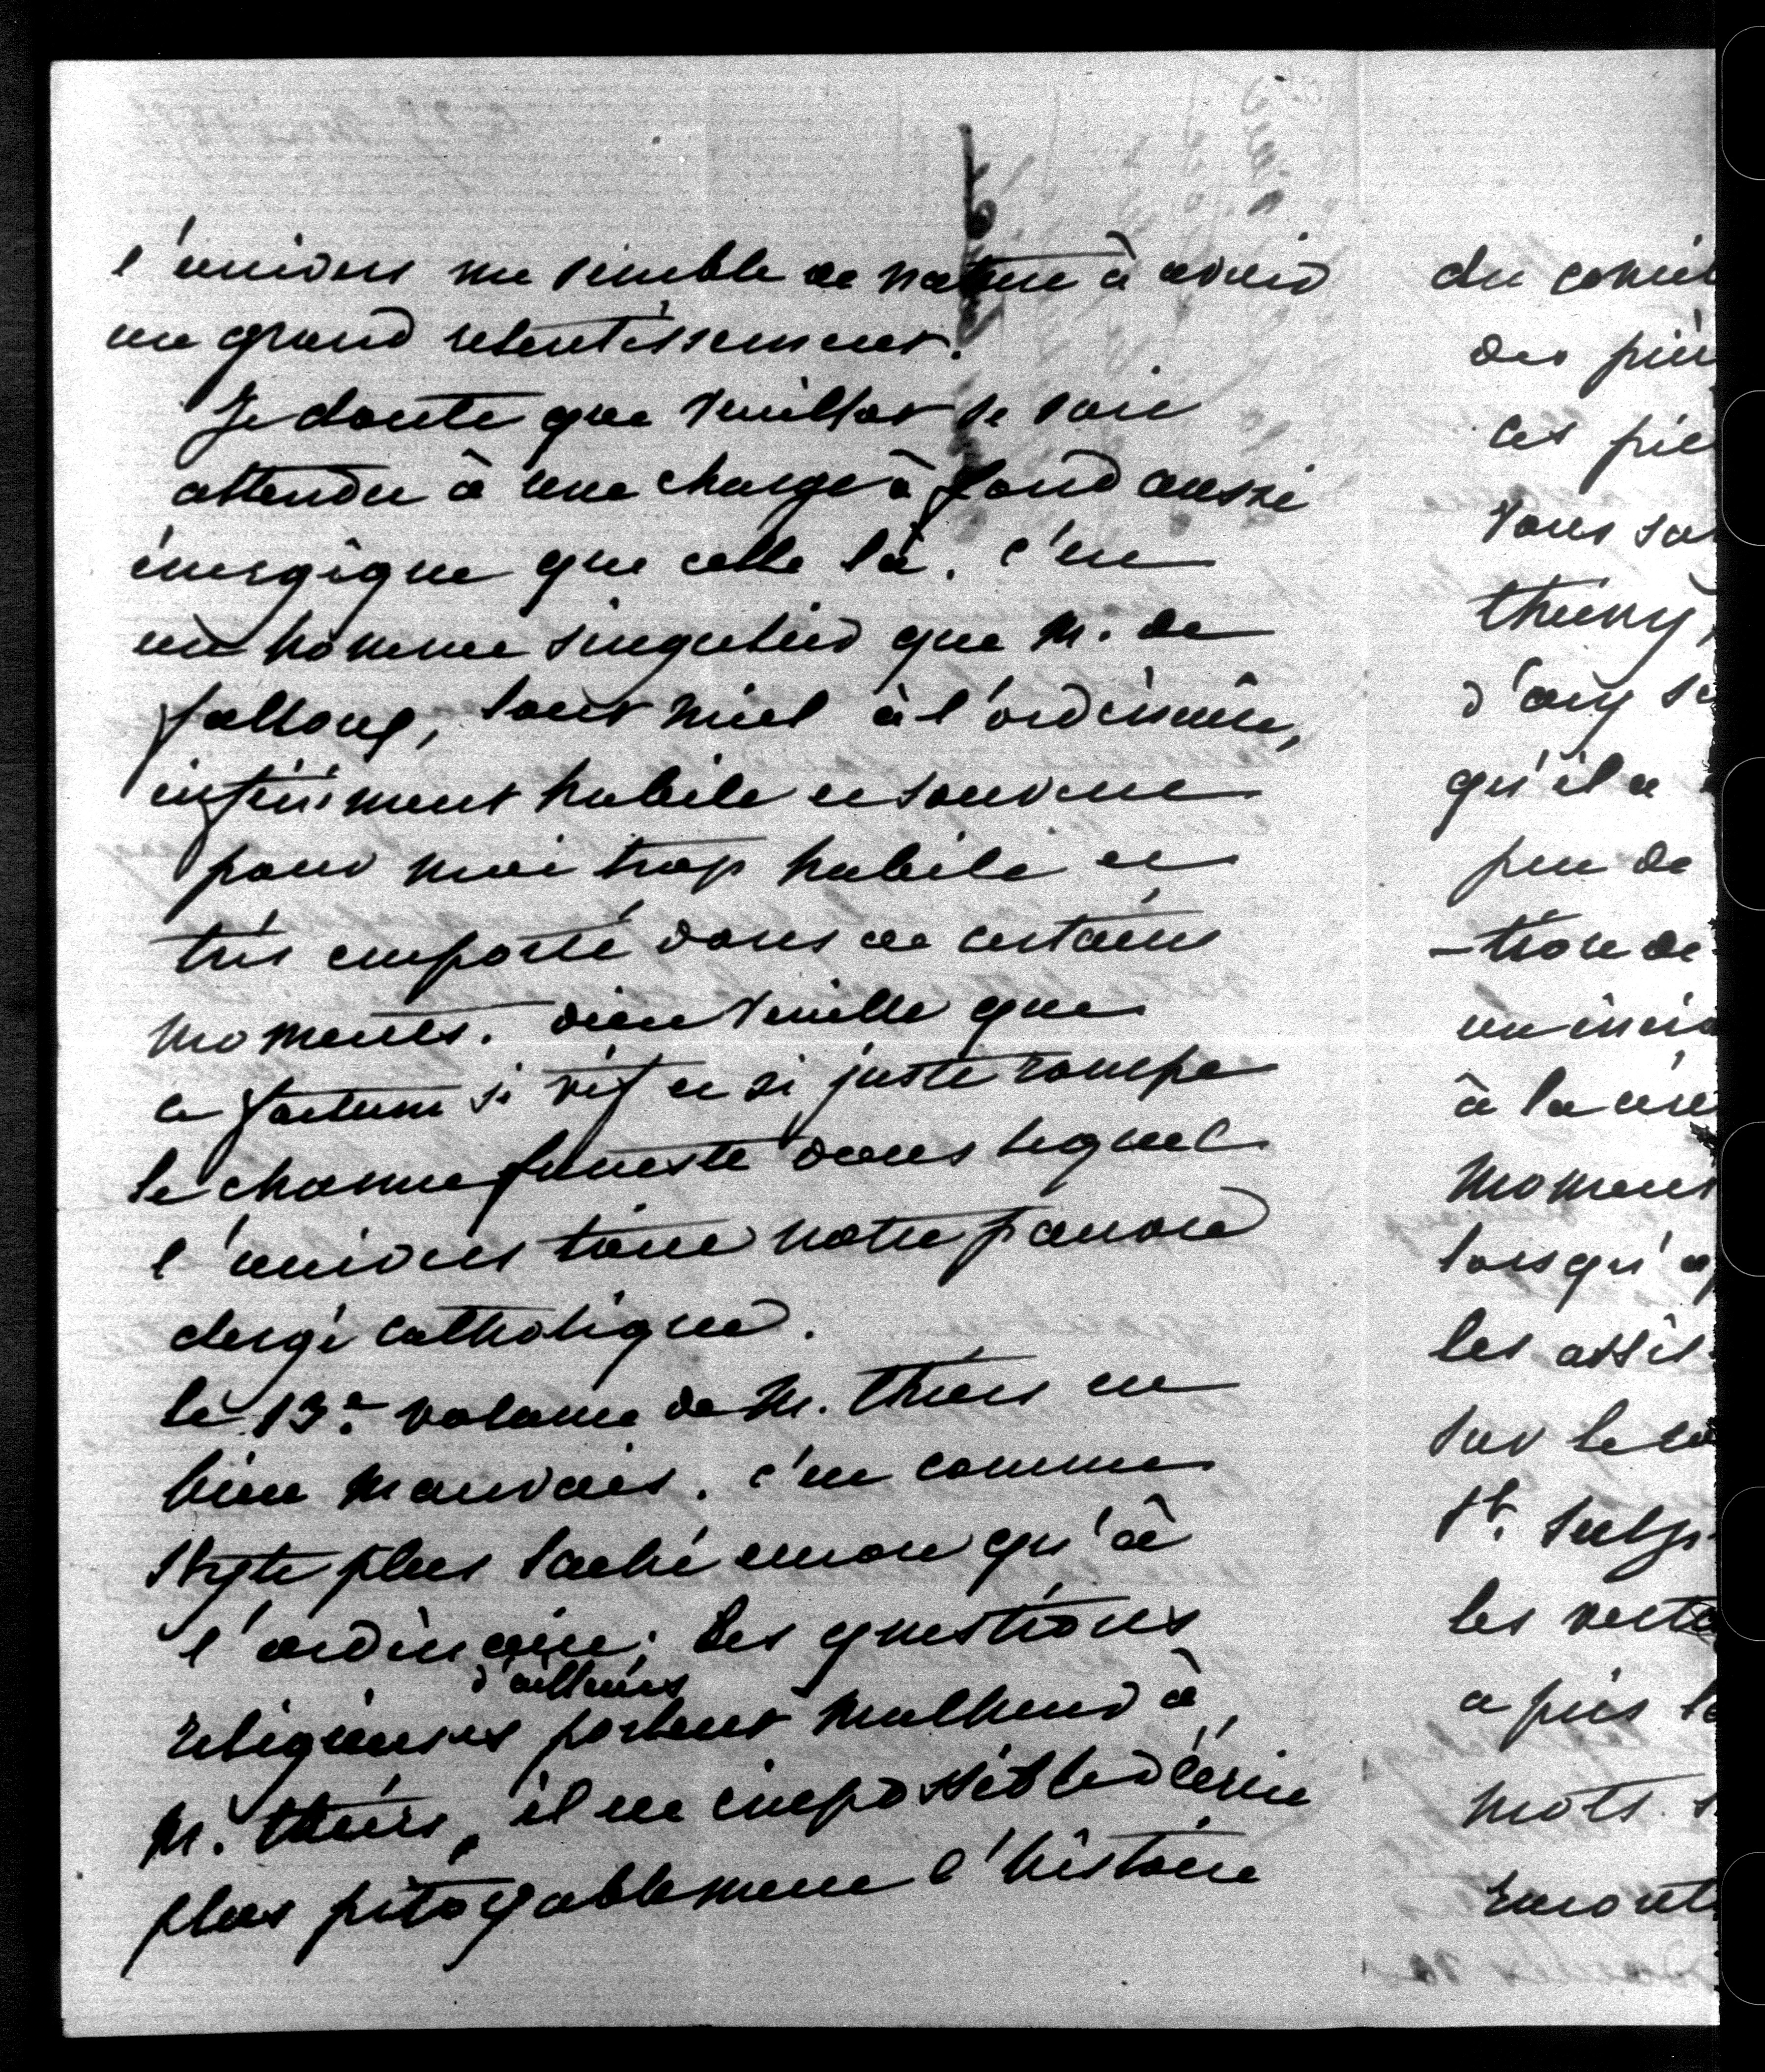 l'univers me semble de nature à avoir
un grand retentissement.
Je doute que Veuillot se soit
attendu à une charge à fond aussi
énergique que celle là. c'est
un homme singulier que M. de
falloux, tout miel à l'ordinaire,
infiniment habile et souvent
pour moi trop habile et
très emporté dans de certains
moments. dieu veuille que
ce factum si vif et si juste rompe
le charme funeste dans lequel
l'univers tient notre pauvre
clergé catholique.
le 13e volume de M. thiers est
bien mauvais. c'est comme
style plus laché encore qu'à
l'ordinaire; les questions
d'ailleurs
religieuses portent malheur à
M. thiers, il est impossible d'écrire
plus pitoyablement l'histoire
du concil
des piè
ces piè
vous sa
thierry,
d'ary se
qu'il a
peu de
-tion de
un inci
à la cé
moment
lorsqu'a
les assis
sur le
St. Sulp
les vert
a pris l
mots s